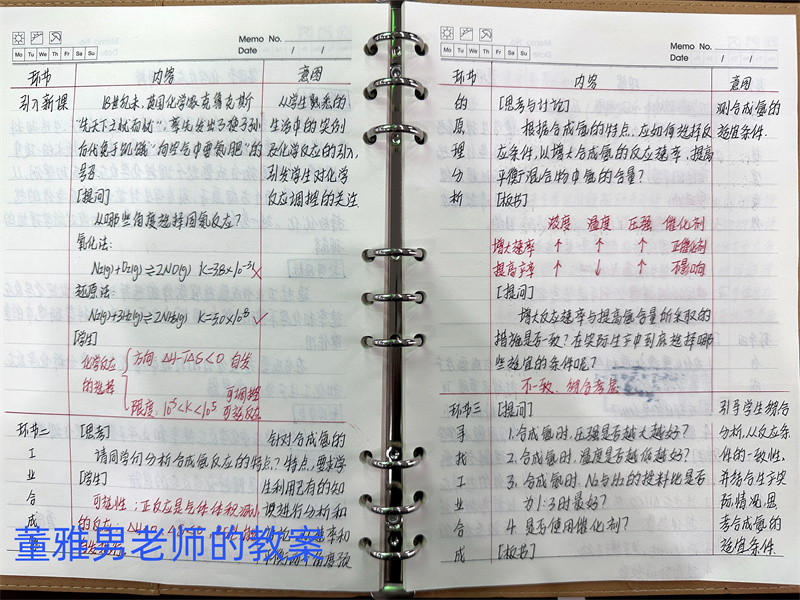 Memo No.
Mo Tu We Th Fr Sa Su
Date / /
环节 内容 意图
引入新课 18世纪末,英国化学家克鲁克斯 从学生熟悉的
"先天下之忧而忧",率先发出了"为子孙 生活中的实例
后代免于饥饿""向空气中要氮肥"的 及化学反应的引入,
号召 引发学生对化学
[提问] 反应调控的关注
从哪些角度选择固氮反应?
氧化法:
N₂(g)+O₂(g)⇌2NO(g) K=3.8×10⁻³¹ ×
还原法:
N₂(g)+3H₂(g)⇌2NH₃(g) K=5.0×10⁸ ✓
[学生]
化学反应 方向 ΔH-TΔS<0 自发
的选择 可调控
限度: 10⁻⁵<K<10⁵ 可逆反应
环节二 [思考] 针对合成氨的
工 请同学们分析合成氨反应的特点? 特点,要求学
业 [学生] 生利用已有的知
合 可逆性:正反应是气体体积减小 识进行分析和
成 的反应 速率和
角度预
董雅男老师的教案
Memo No.
Mo Tu We Th Fr Sa Su
Date / /
环节 内容 意图
的 [思考与讨论] 测合成氨的
原 根据合成氨的特点,应如何选择反 适宜条件.
理 应条件,以增大合成氨的反应速率、提高
分 平衡混合物中氨的含量?
析 [板书]
浓度 温度 压强 催化剂
增大速率 ↑ ↑ ↑ 正催化剂
提高产率 ↑ ↓ ↑ 不影响
[提问]
增大反应速率与提高氨含量所采取的
措施是否一致?在实际生产中到底选择哪
些适宜的条件呢?
不一致.综合考虑
环节三 [提问] 引导学生结合
寻 1.合成氨时,压强是否越大越好? 分析,从反应条
找 2.合成氨时,温度是否越低越好? 件的一致性,
工 3.合成氨时,N₂与H₂的投料比是否 并结合生产实
业 为1:3时最好? 际情况,思
合 4.是否使用催化剂? 考合成氨的
成 [板书] 适宜条件.